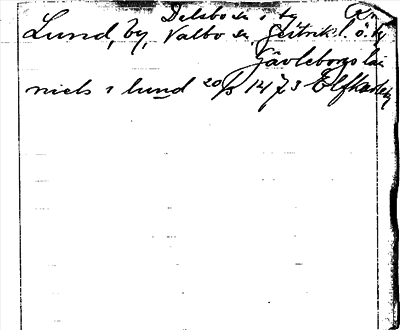 Delsbo sn i ty R:n
Lund, by, Valbo sn, Gästrikl. ö. ty
Gävleborgs län
niels i lund 20/5 1473